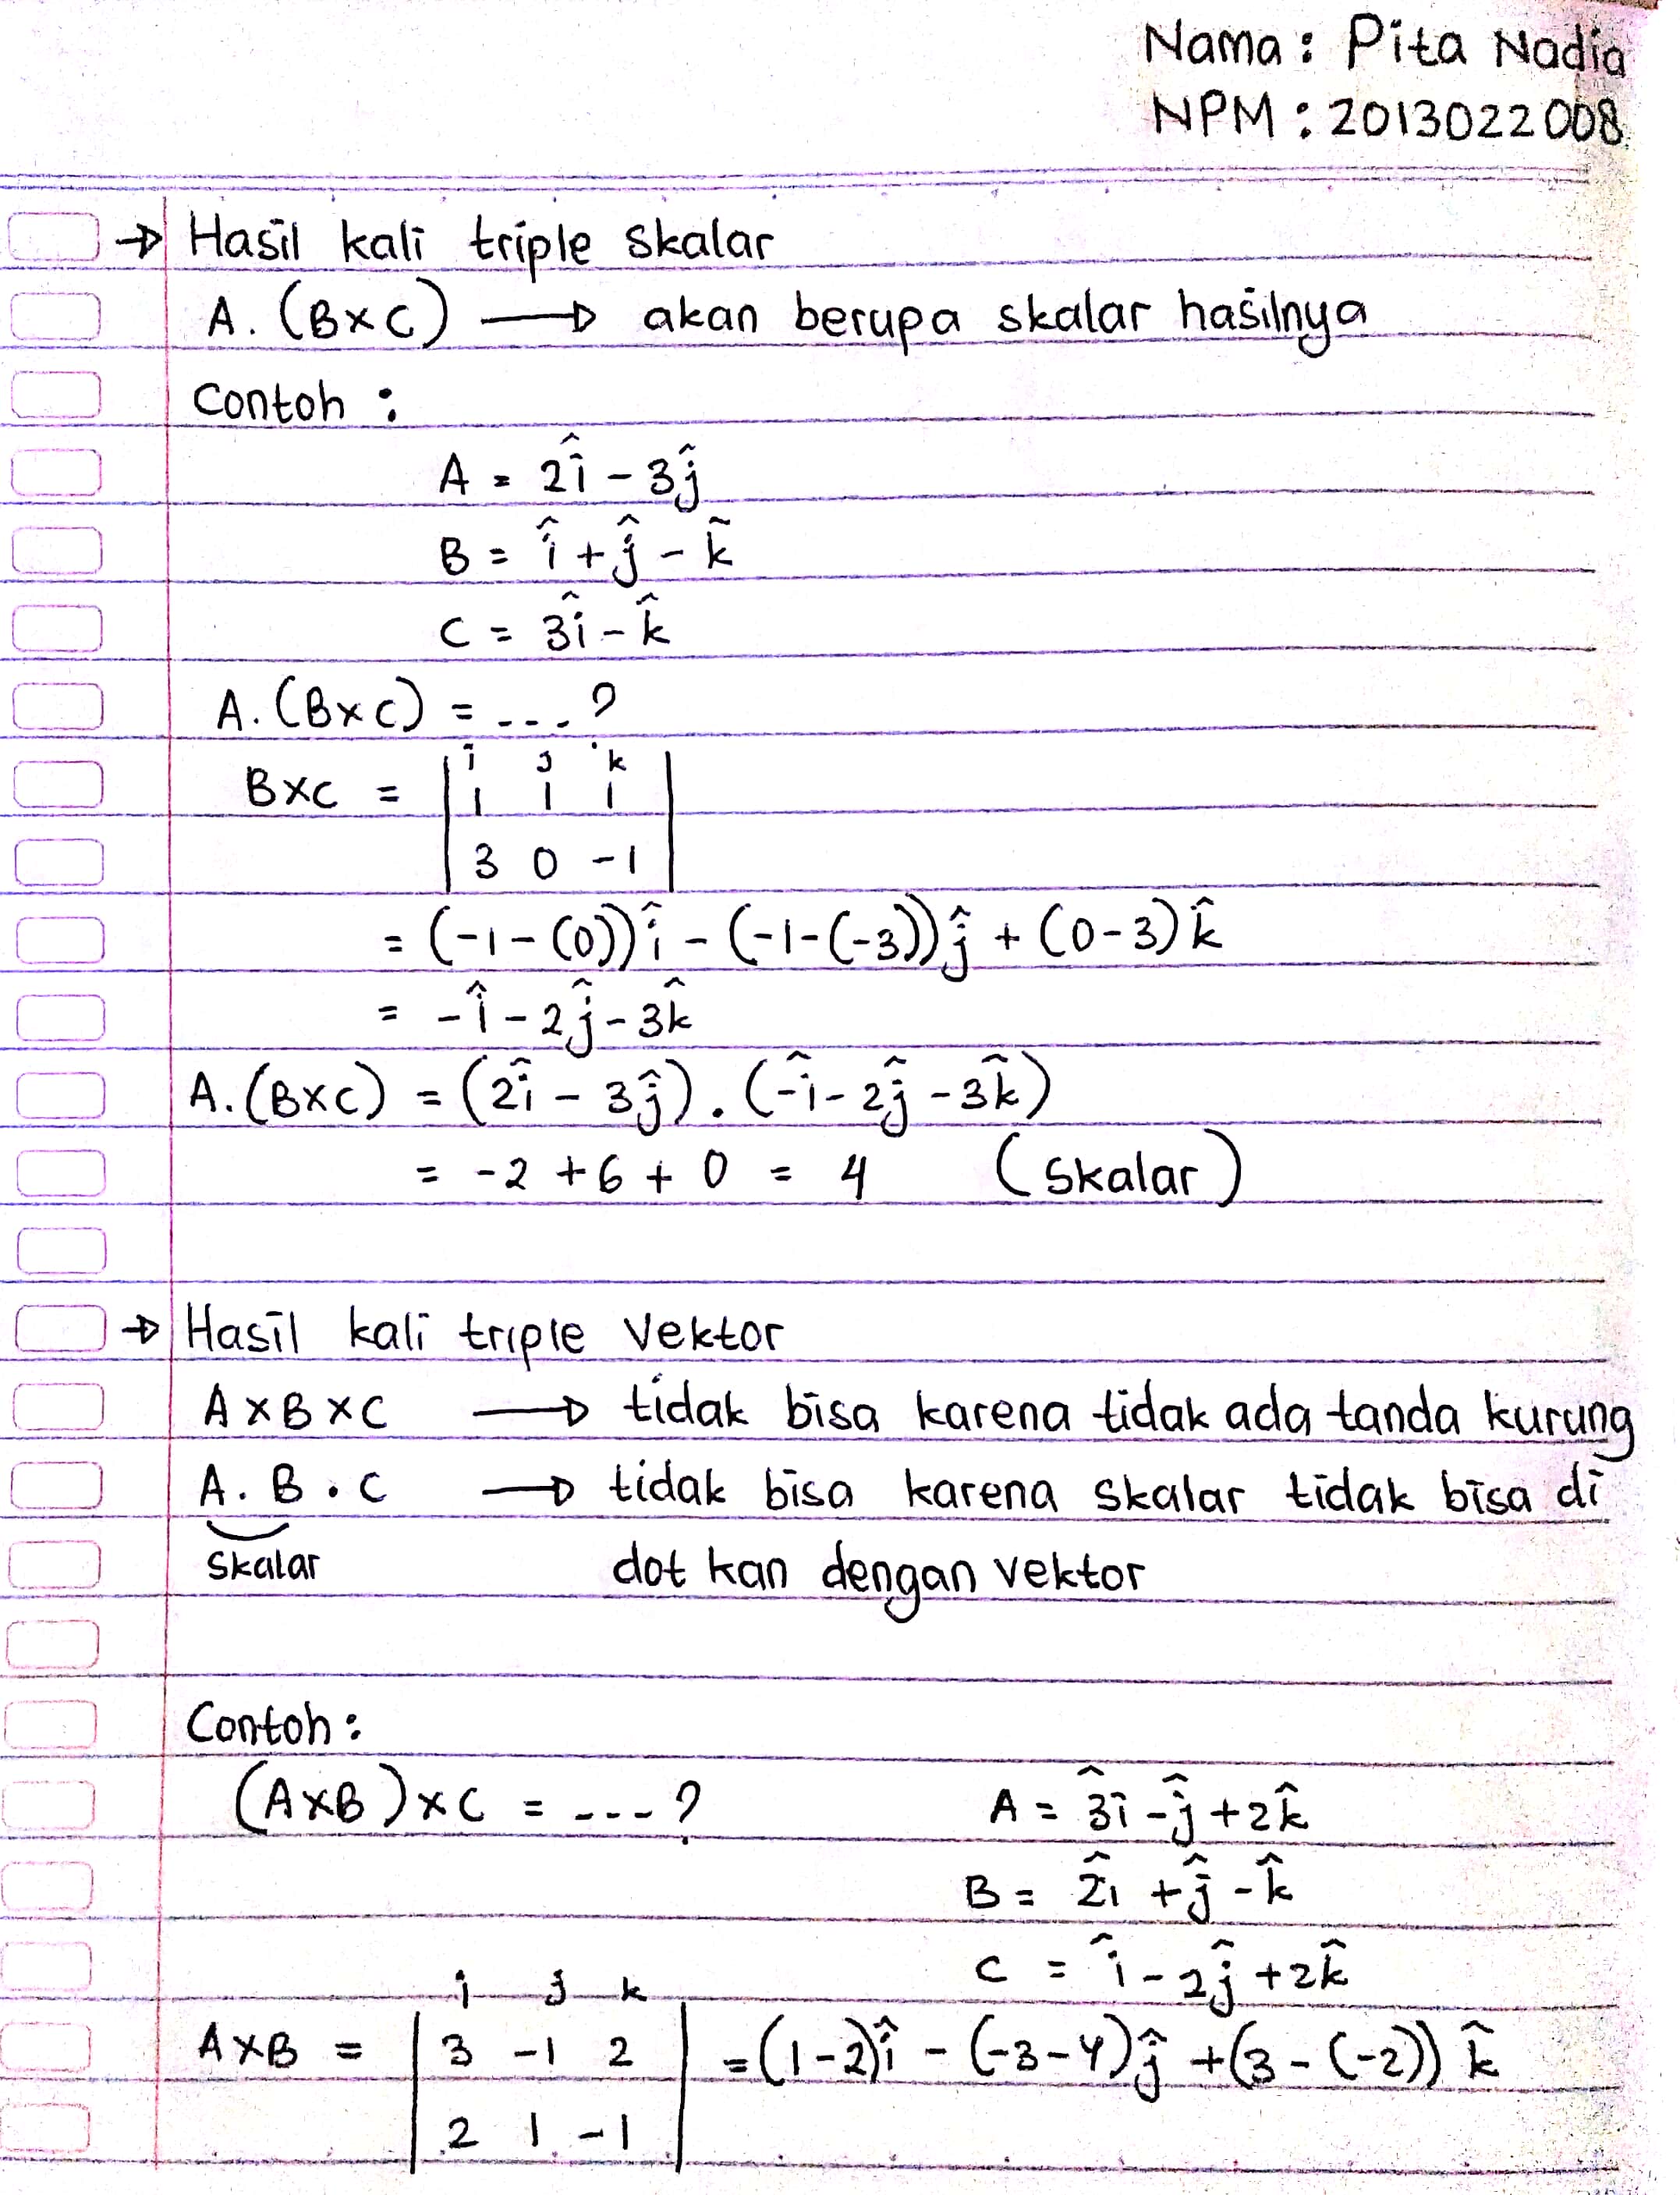 Nama : Pita Nadia
NPM : 2013022008
→ Hasil kali triple skalar
A. (B×C) → akan berupa skalar hasilnya
Contoh :
A = 2î - 3ĵ
B = î + ĵ - k̃
C = 3î - k̂
A. (B×C) = .... ?
i j k
B×C = | 1 1 1 |
| 3 0 -1 |
= (-1-(0))î - (-1-(-3))ĵ + (0-3)k̂
= -î - 2ĵ - 3k̂
A. (B×C) = (2î - 3ĵ) . (-î - 2ĵ - 3k̂)
= -2 + 6 + 0 = 4 (skalar)
→ Hasil kali triple vektor
A × B × C → tidak bisa karena tidak ada tanda kurung
A . B . C → tidak bisa karena skalar tidak bisa di
skalar dot kan dengan vektor
Contoh :
(A×B)×C = .... ? A = 3î - ĵ + 2k̂
B = 2î + ĵ - k̂
C = î - 2ĵ + 2k̂
i j k
A×B = | 3 -1 2 | = (1-2)î - (-3-4)ĵ + (3-(-2)) k̂
| 2 1 -1 |